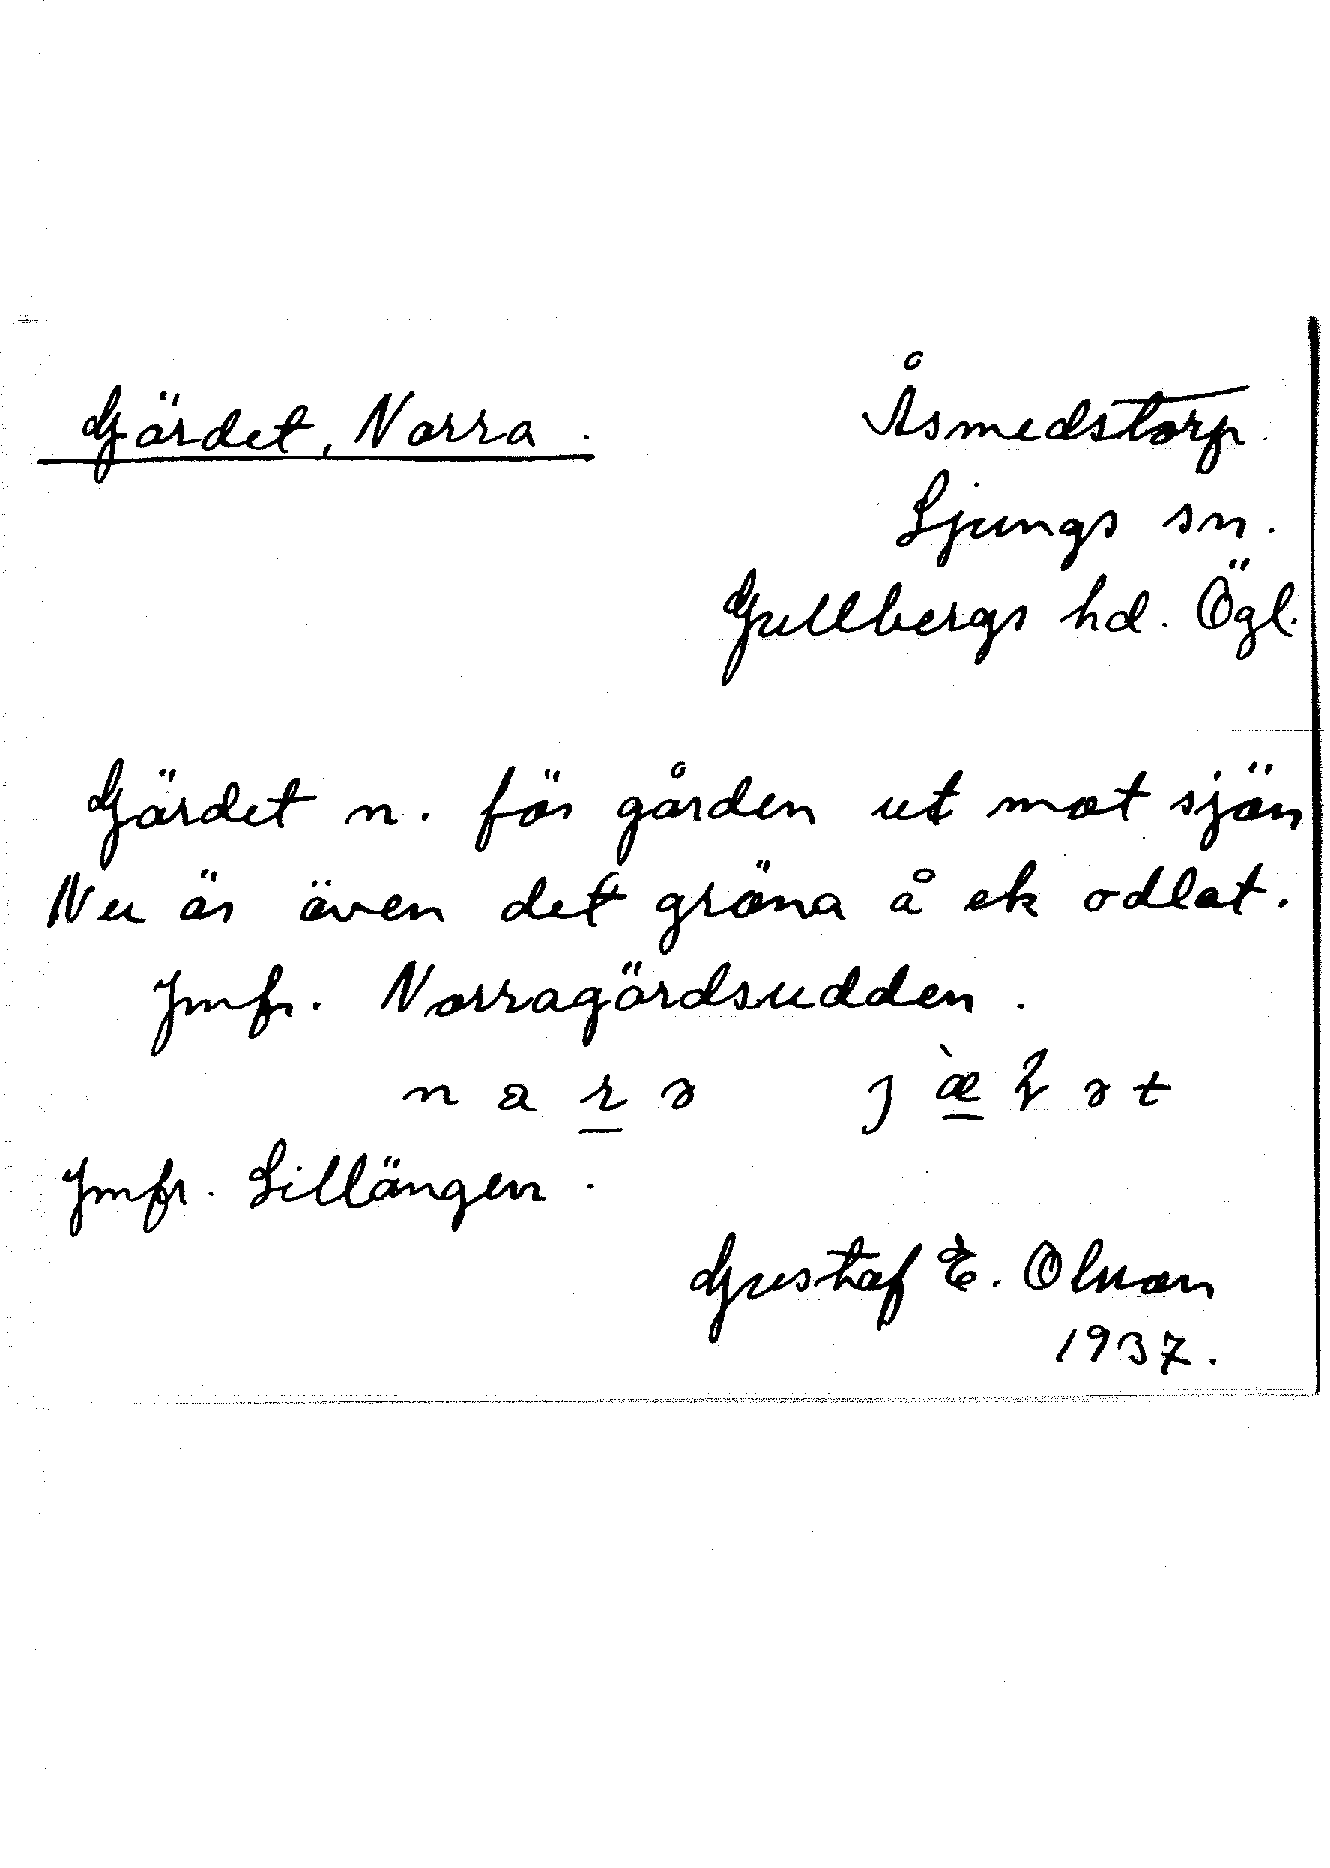 Gärdet, Norra.
Åsmedstorp.
Ljungs sn.
Gullbergs hd. Ögl.
Gärdet n. för gården ut mot sjön
Nu är även det gröna å ek odlat.
Jmfr. Norragärdsudden.
Jmfr. Lillängen.
Gustaf E. Olsson
1937.